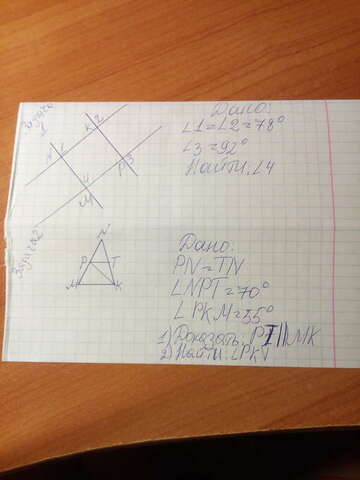 Задача 1
K 2
N 1
P 3
4
M
Дано:
∠1=∠2=78°
∠3=92°
Найти: ∠4
Задача 2
N
P T
M K
Дано:
PN=TN
∠NPT=70°
∠PKM=55°
1) Доказать: PT||MK
2) Найти: ∠PKT